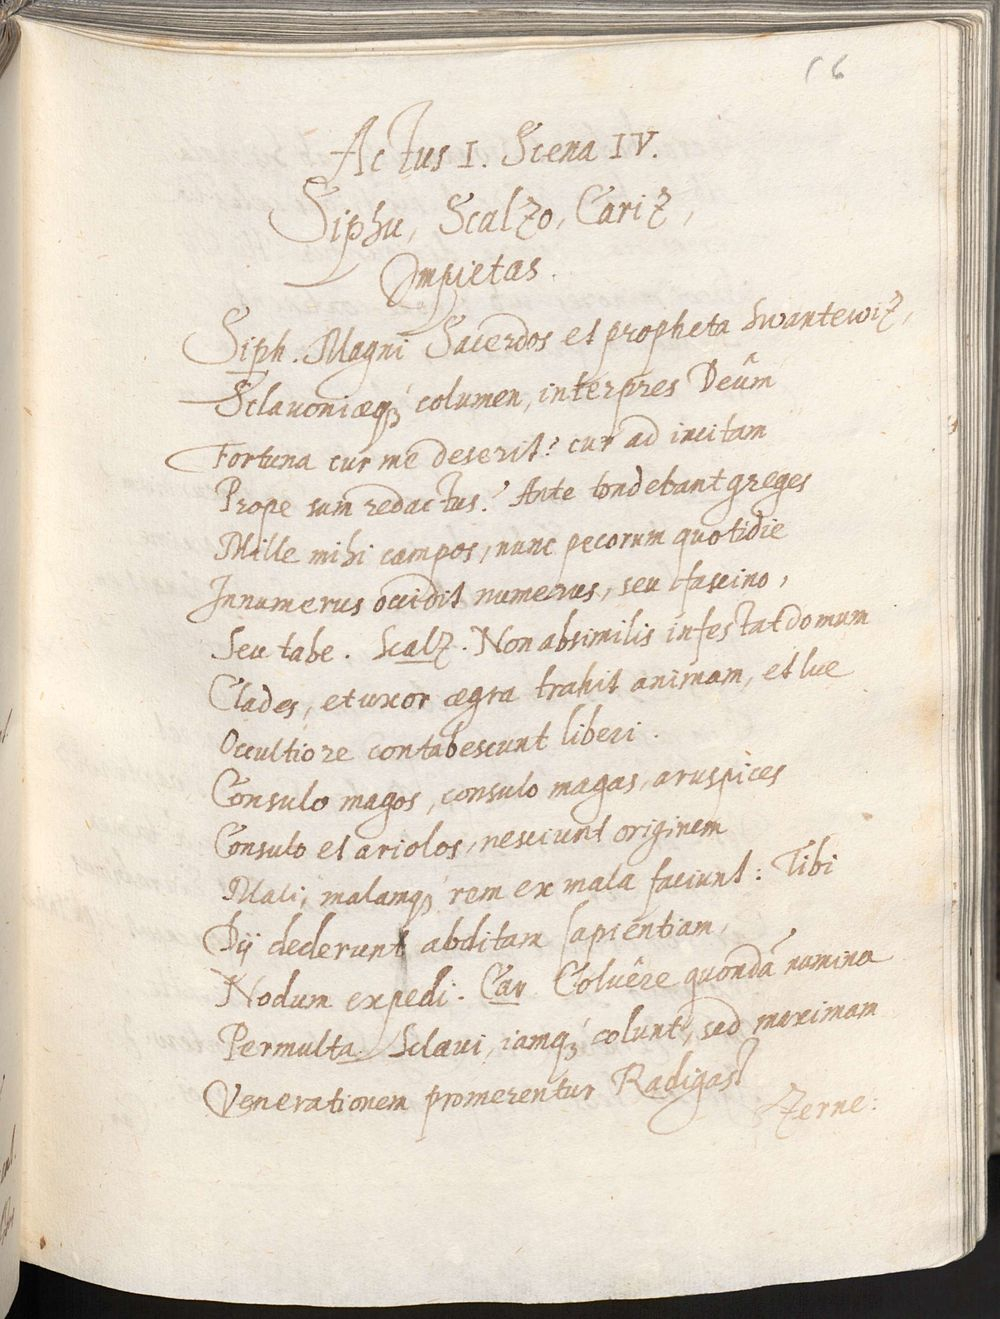 16
Actus I. Scena IV.
Siphu, Scalzo, Cariz,
Impietas.
Siph. Magni Sacerdos et propheta Swantewiz,
Sclavoniæq́; columen, interpres Deûm
Fortuna cur me deserit? cur ad incitam
Prope sum redactus? Ante tondebant greges
Mille mihi campos, nunc pecorum quotidie
Innumerus occidit numerus, seu fascino,
Seu tabe. Scalz. Non absimilis infestat domum
Clades, et uxor ægra trahit animam, et lue
Occultiore contabescunt liberi.
Consulo magos, consulo magas, aruspices
Consulo et ariolos, nesciunt originem
Mali, malamq́; rem ex mala faciunt: Tibi
Dij dederunt abditam sapientiam,
Nodum expedi. Car. Coluêre quondã numina
Permulta Sclavi, iamq́; colunt, sed maximam
Venerationem promerentur Radigast
Zerne: